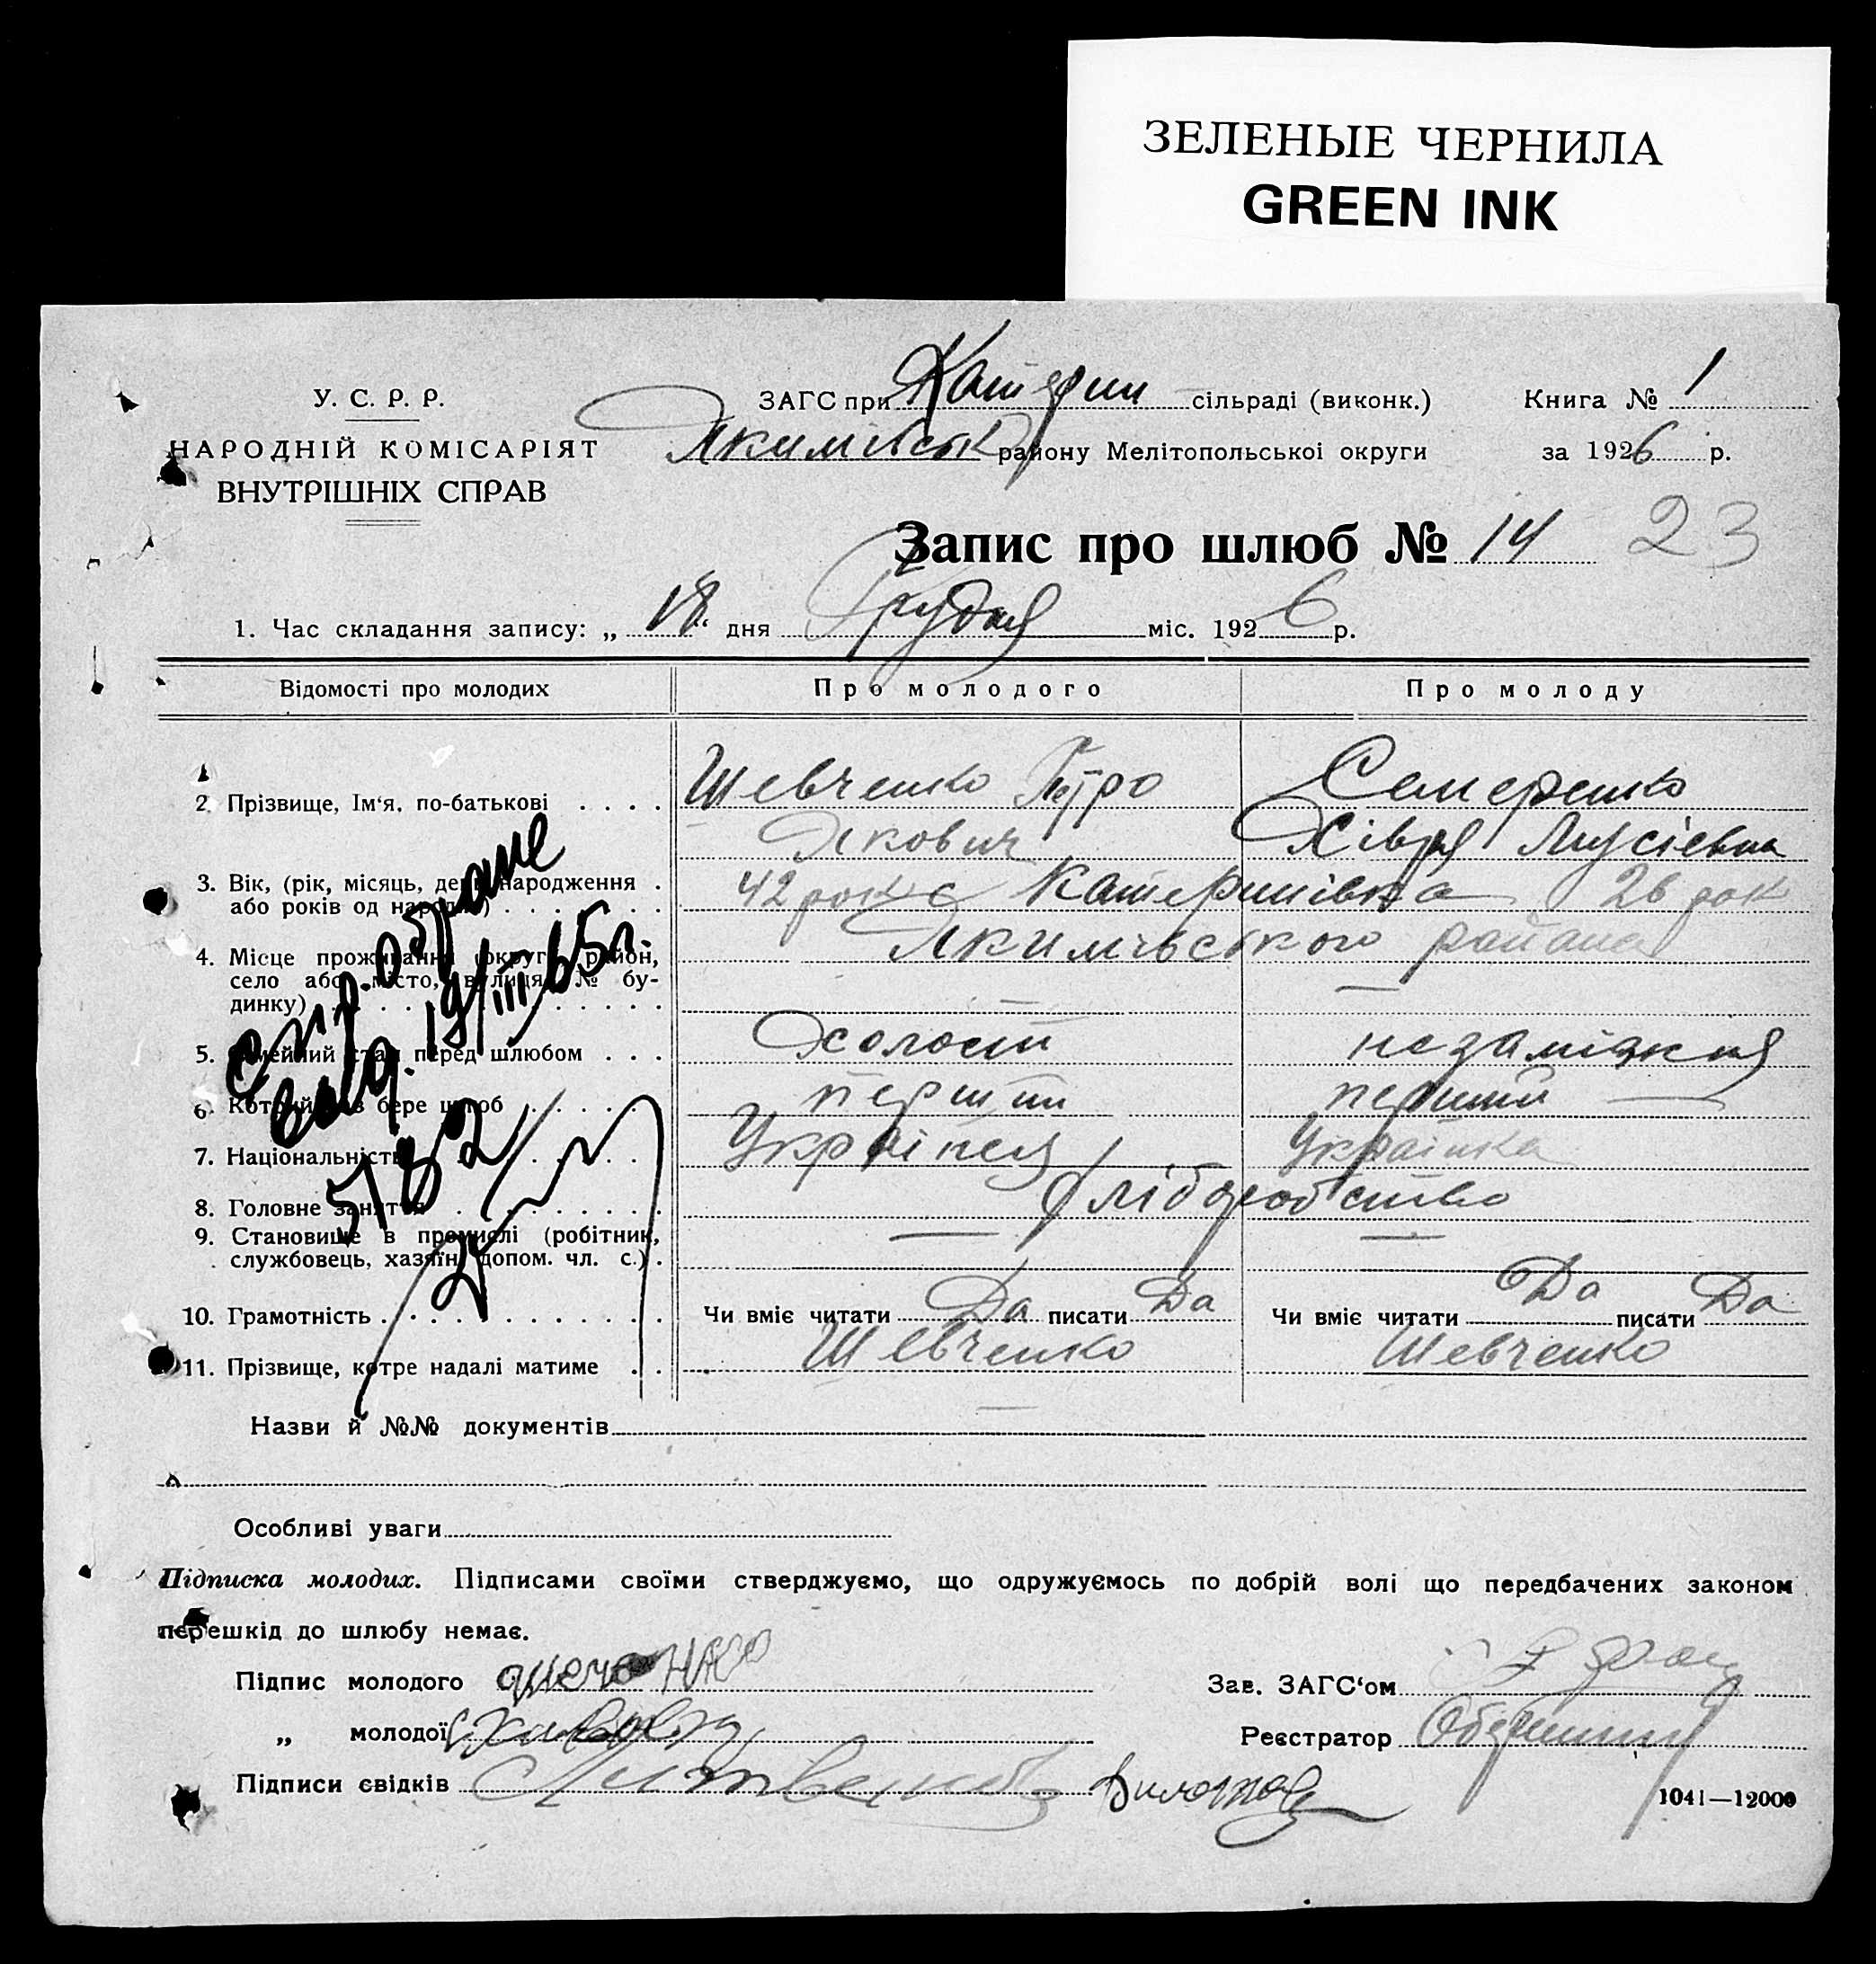 ЗЕЛЕНЫЕ ЧЕРНИЛА
GREEN INK
У. С. Р. Р.
НАРОДНІЙ КОМІСАРІЯТ
ВНУТРІШНІХ СПРАВ
ЗАГС при Катерин сільраді (виконк.)
Якимівськ району Мелітопольської округи
Книга № 1
за 1926 р.
Запис про шлюб № 14 23
1. Час складання запису: „ 18 " дня Грудня міс. 1926 р.
Відомості про молодих Про молодого Про молоду
2. Прізвище, Ім'я, по-батькові . . . . Шевченко Петро Семеренко
Якович Хівря Мусієвна
3. Вік, (рік, місяць, день народження . 42 рок с Катеринівка 26 рок
або років од народж.) . . . . . . .
4. Місце проживання (округ, район, Якимівського района
село або місто, вулиця № бу-
динку) . . . . . . . . . . . . . .
5. Сімейний стан перед шлюбом . . . Холост незаміжня
6. Котрий раз бере шлюб . . . . . . перший перший
7. Національність . . . . . . . . . Українец Українка
8. Головне заняття . . . . . . . . . Хлібороб ство
9. Становище в промислі (робітник,
службовець, хазяїн, допом. чл. с.) .
10. Грамотність . . . . . . . . . . . . Чи вміє читати Да писати Да Чи вміє читати Да писати Да
11. Прізвище, котре надалі матиме . . Шевченко Шевченко
выд. 19/III 65 г.
Назви й №№ документів
Особливі уваги
Підписка молодих. Підписами своїми стверджуємо, що одружуємось по добрій волі що передбачених законом
перешкід до шлюбу немає.
Підпис молодого
Зав. ЗАГС'ом
„ молодої
Реєстратор
Підписи свідків
1041—12000